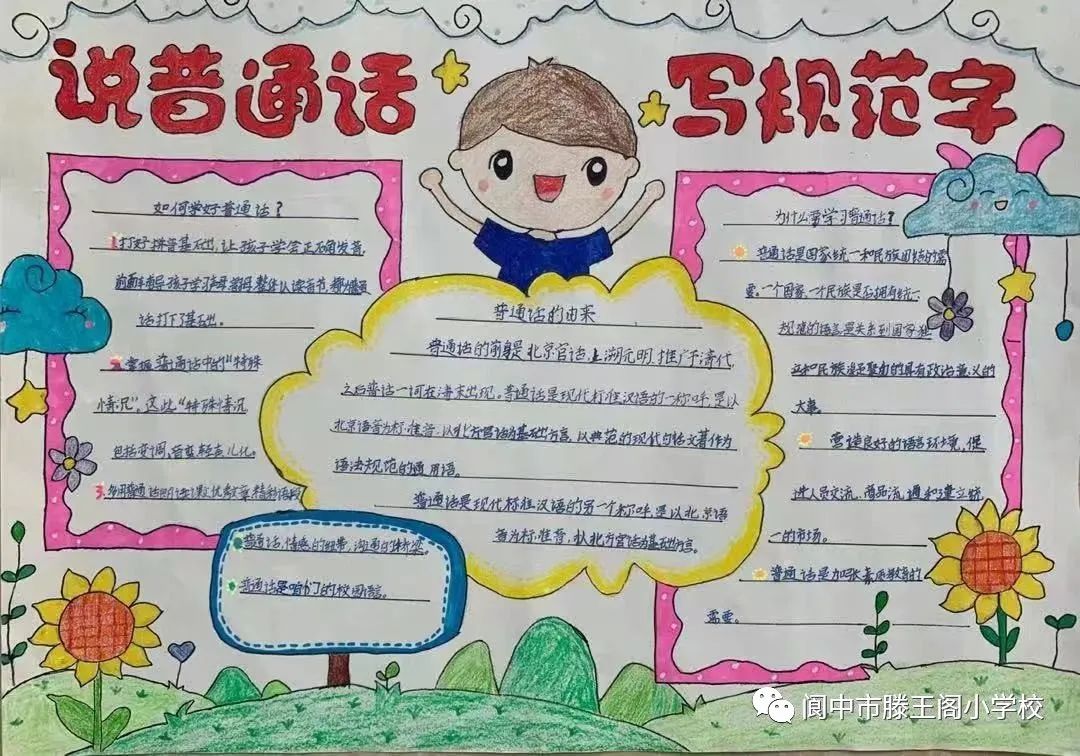 说普通话
写规范字
如何学好普通话？
1.打好拼音基础，让孩子学会正确发音，
前面辅导孩子学习声母韵母整体认读音节都是
话打下基础。
2.掌握普通话中的“特殊
情况”，这些“特殊情况
包括变调，音变，轻声儿化。
3.多用普通话朗读课文优秀文章精彩语段
普通话的由来
普通话的前身是北京官话，上溯元明，推广于清代
之后普话一词在清末出现。普通话是现代标准汉语的一称呼，是以
北京语音为标准音，以北方官话为基础方言，以典范的现代白话文著作为
语法规范的通用语。
普通话是现代标准汉语的另一个称呼，是以北京语
音为标准音，以北方官话为基础方言。
普通话，情感的纽带，沟通的桥梁。
普通话是咱们的校园语言。
为什么要学习普通话？
普通话是国家统一和民族团结的需
要。一个国家、一个民族是否拥有统一
规范的语言是关系到国家独
立和民族凝聚力的具有政治意义的
大事。
营造良好的语言环境，促
进人员交流，商品流通和建立统
一的市场。
普通话是加强素质教育的
需要。
阆中市滕王阁小学校